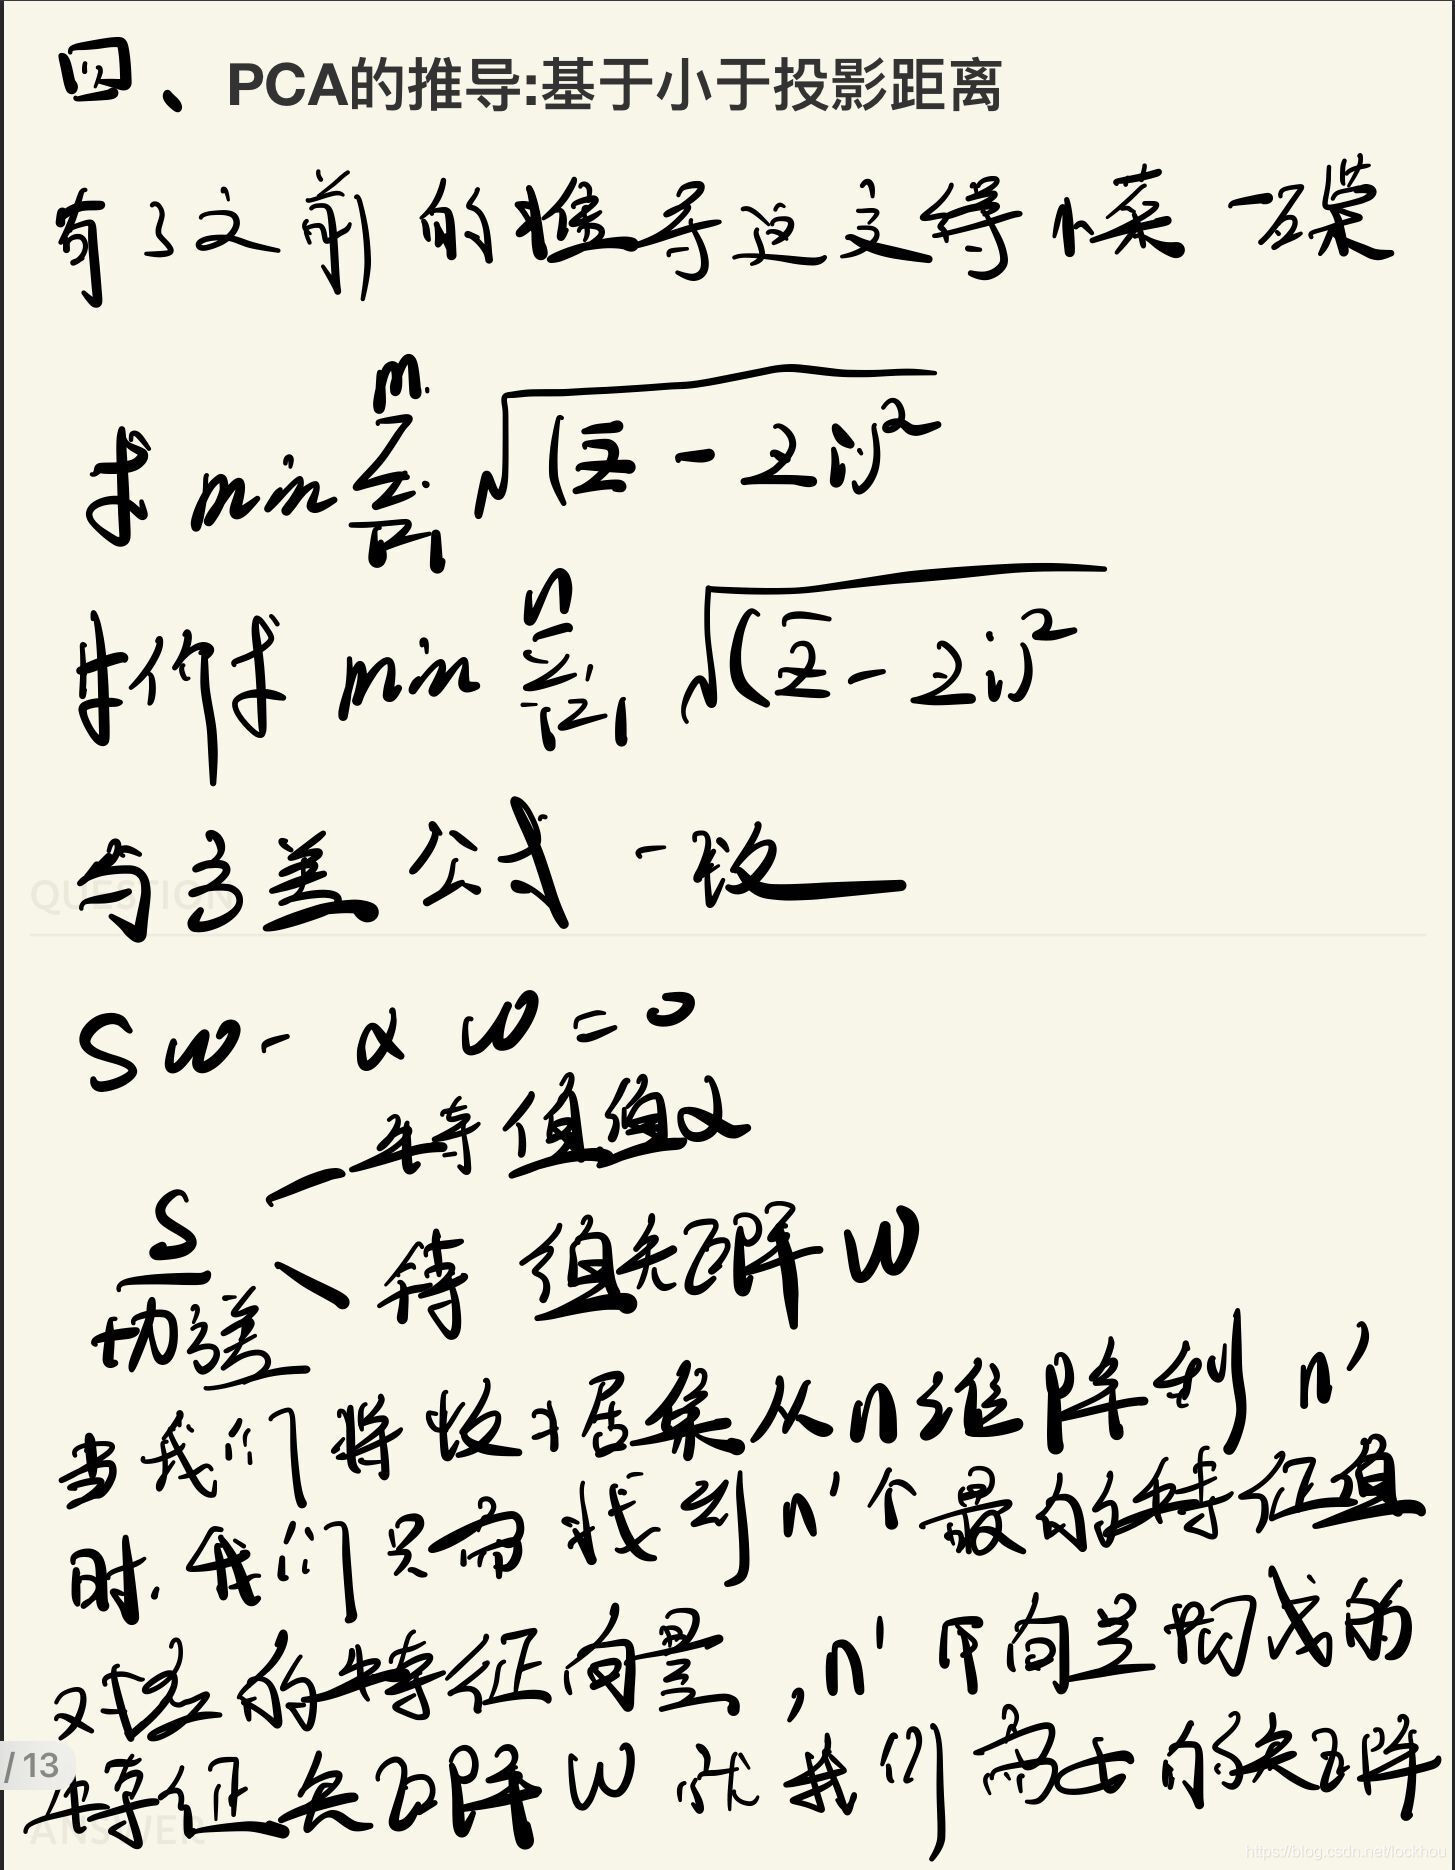 四、PCA的推导:基于小于投影距离
有了之前的推导这变得 简单
求 min \sum_{i=1}^{m} \sqrt{(\bar{z} - zi)^2}
求 min \sum_{i=1}^{n} \sqrt{(\bar{z} - zi)^2}
QUESTION
与方差公式一致
Sw - α w = 0
特 值值α
S
特 矩阵 W
协方差
当我们将数据集从n维降到 n'
时. 我们只需找到n'个最的特征值
对应的特征向量, n'个向量构成的
/ 13
特征矩阵W 就我们需 的矩阵
ANSWER
https://blog.csdn.net/lockhou